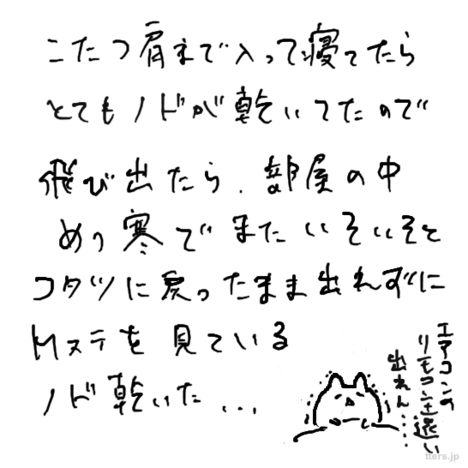 こたつ肩まで入って寝てたら
とてもノドが乾いてたので
飛び出たら、部屋の中
めっ寒でまたいそいそと
コタツに戻ったまま出れずに
Mステを見ている
ノド乾いた...
エアコンの
リモコンも遠い
出れん....
tters.jp